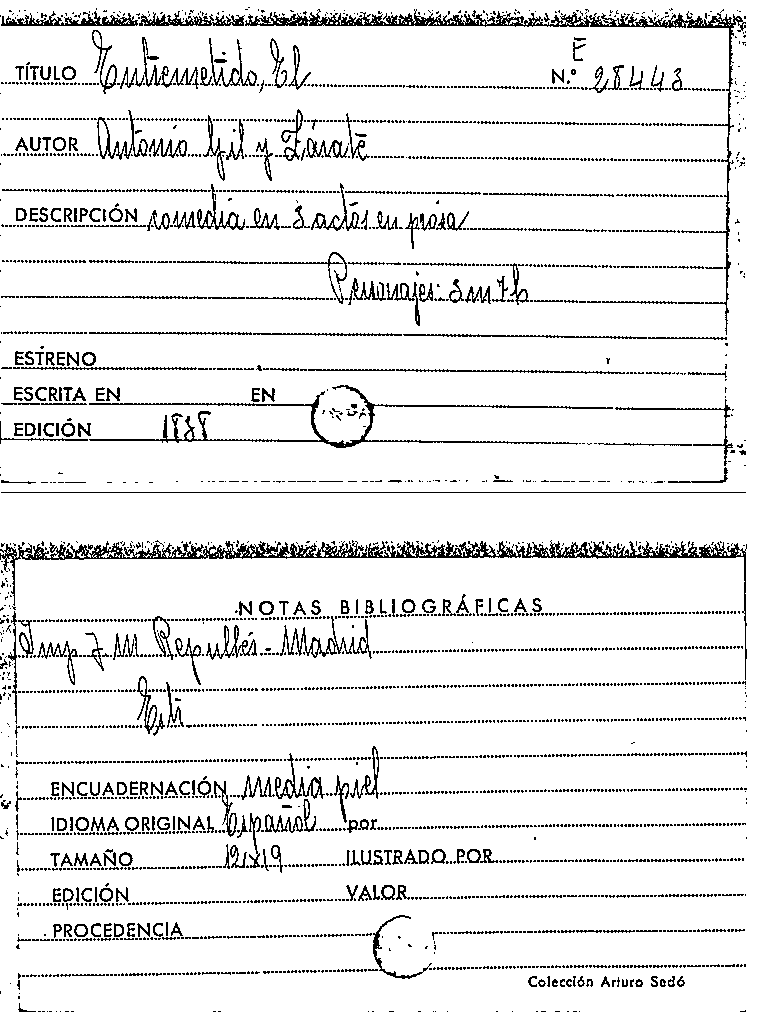 E
TÍTULO Entremetido, El N.º 28443
AUTOR Antonio Gil y Zárate
DESCRIPCIÓN comedia en 3 actos en prosa
Personajes: 3m 7h
ESTRENO
ESCRITA EN EN
EDICIÓN 1838
NOTAS BIBLIOGRÁFICAS
Imp J M Repullés - Madrid
ENCUADERNACIÓN media piel
IDIOMA ORIGINAL Español por
TAMAÑO 12x19 ILUSTRADO POR
EDICIÓN VALOR
PROCEDENCIA
Colección Arturo Sedó